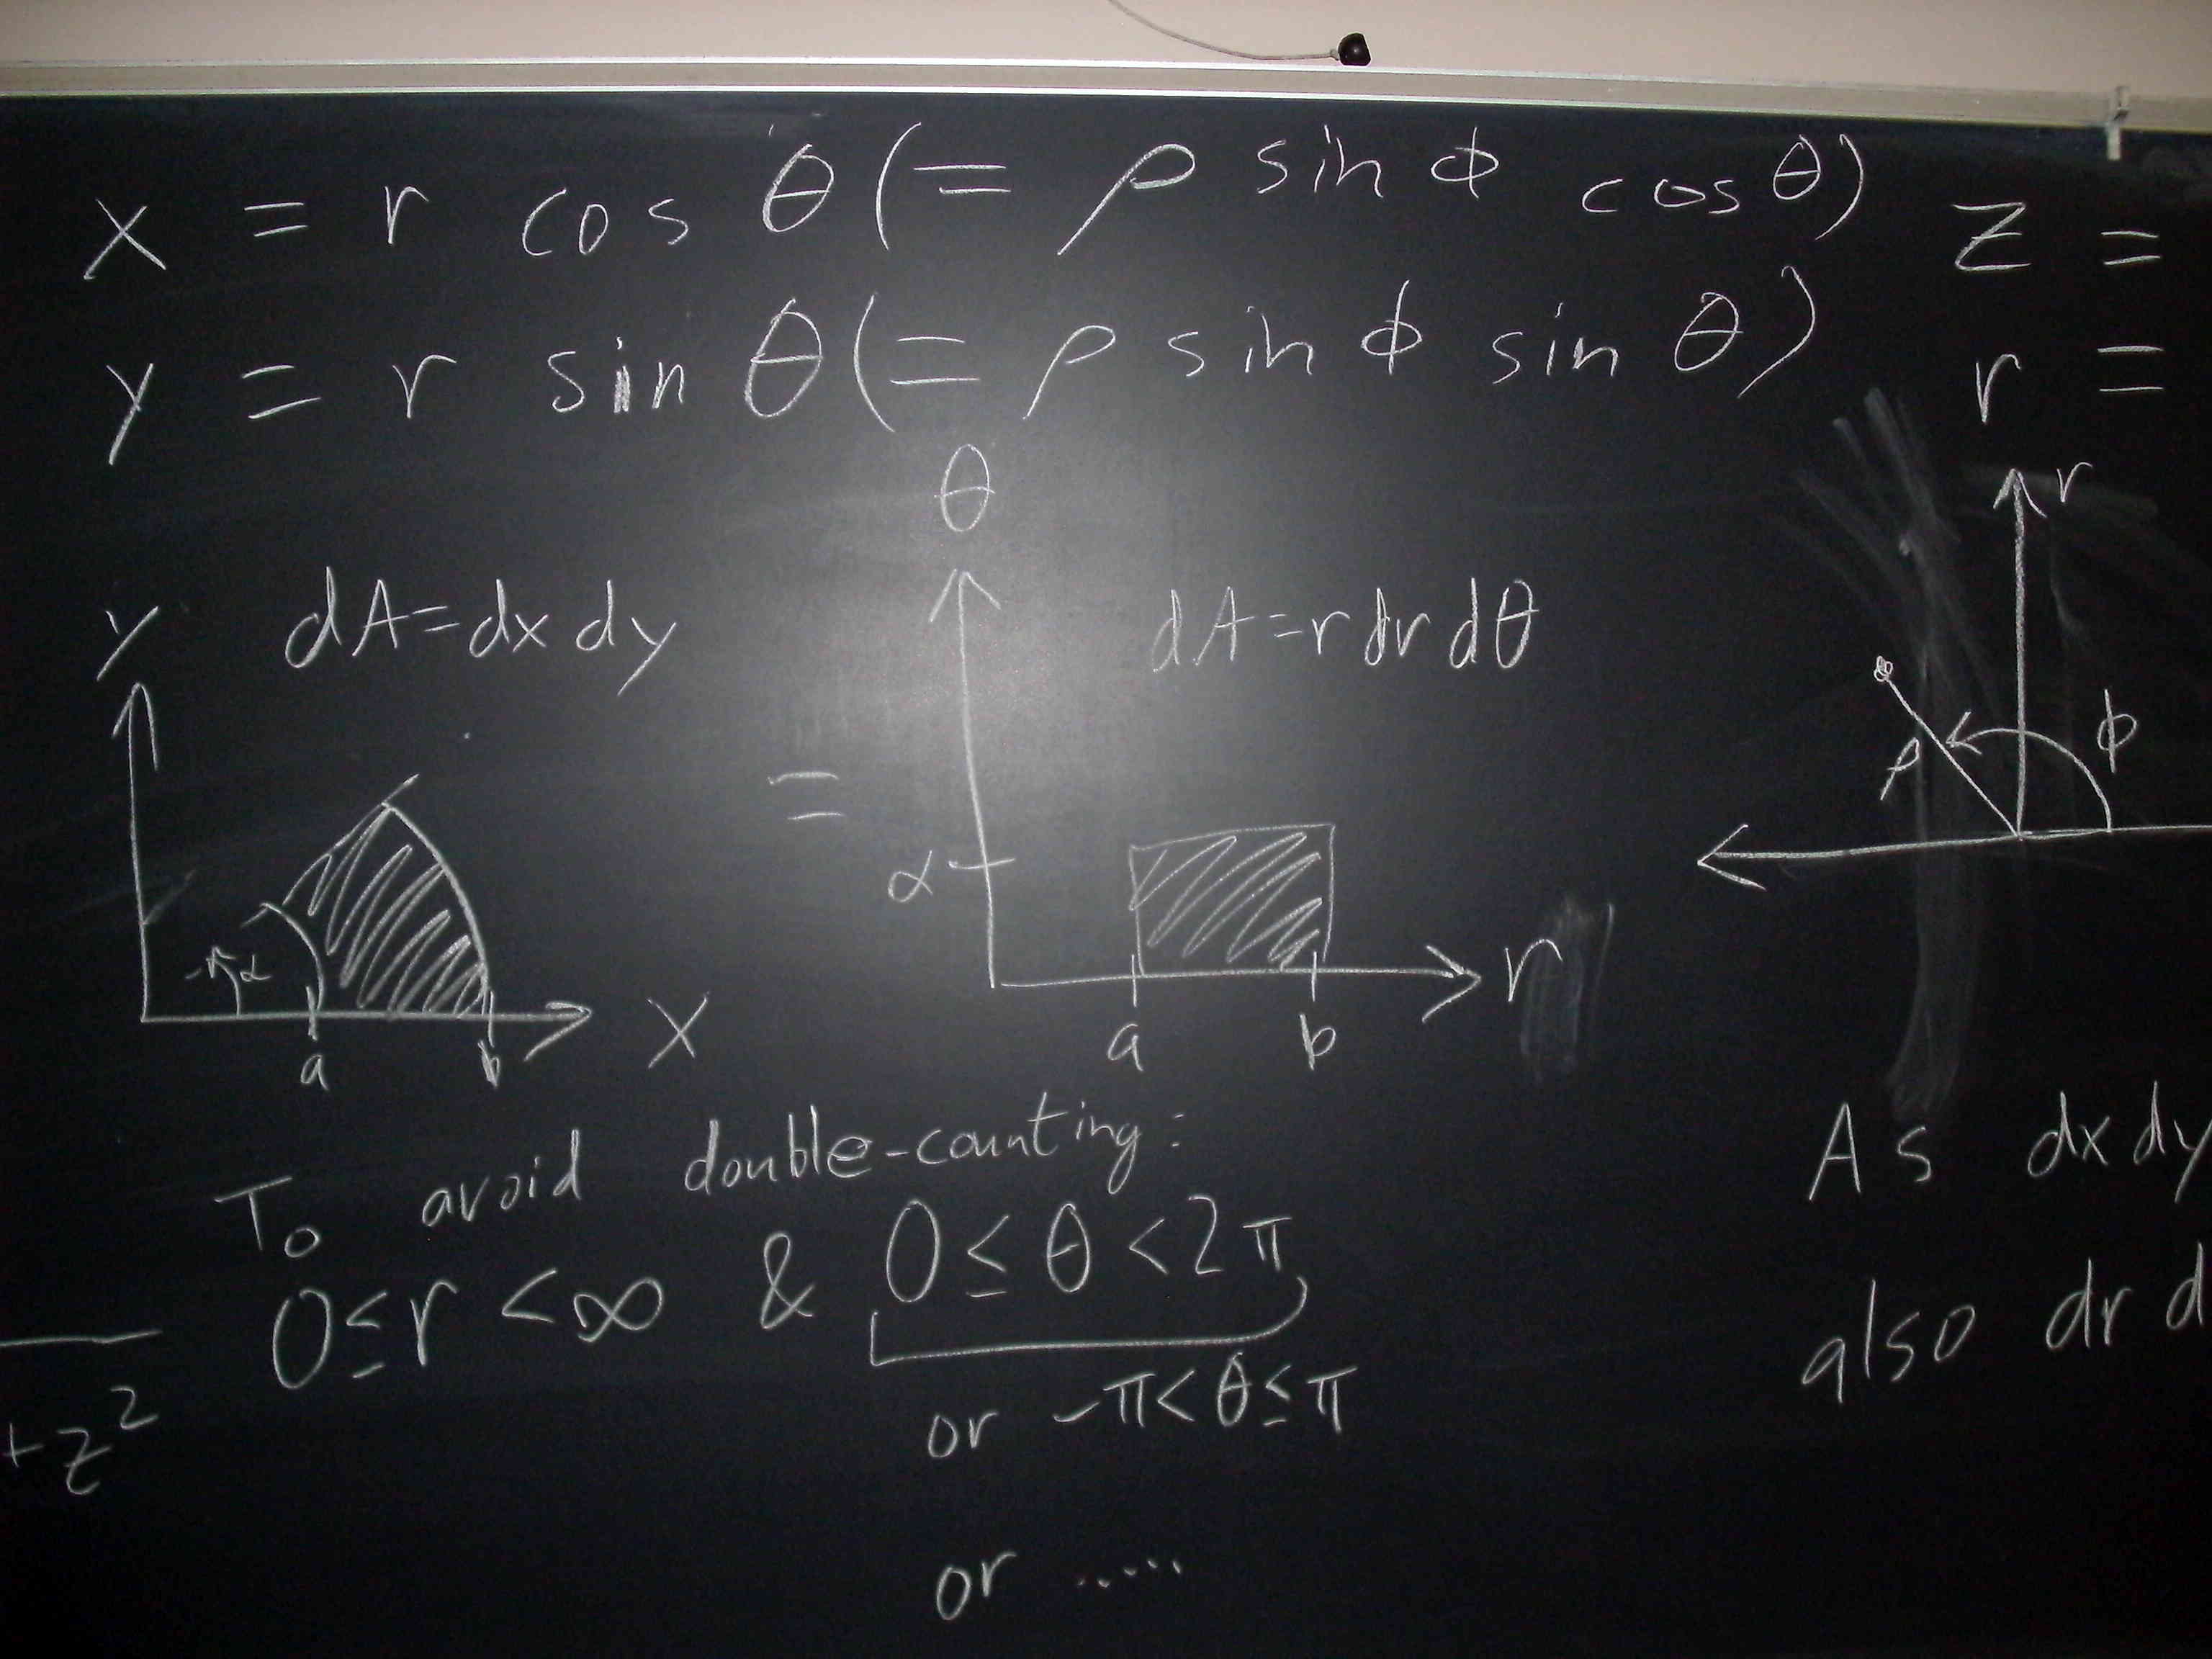 x = r cos θ (= ρ sin ϕ cos θ)
y = r sin θ (= ρ sin ϕ sin θ)
z =
r =
y
dA = dx dy
α
a
b
x
=
θ
dA = r dr dθ
α
a
b
r
r
ρ
ϕ
To avoid double-counting:
0 ≤ r < ∞ & 0 ≤ θ < 2π
or -π < θ ≤ π
or .....
+ z²
As dx dy
also dr d